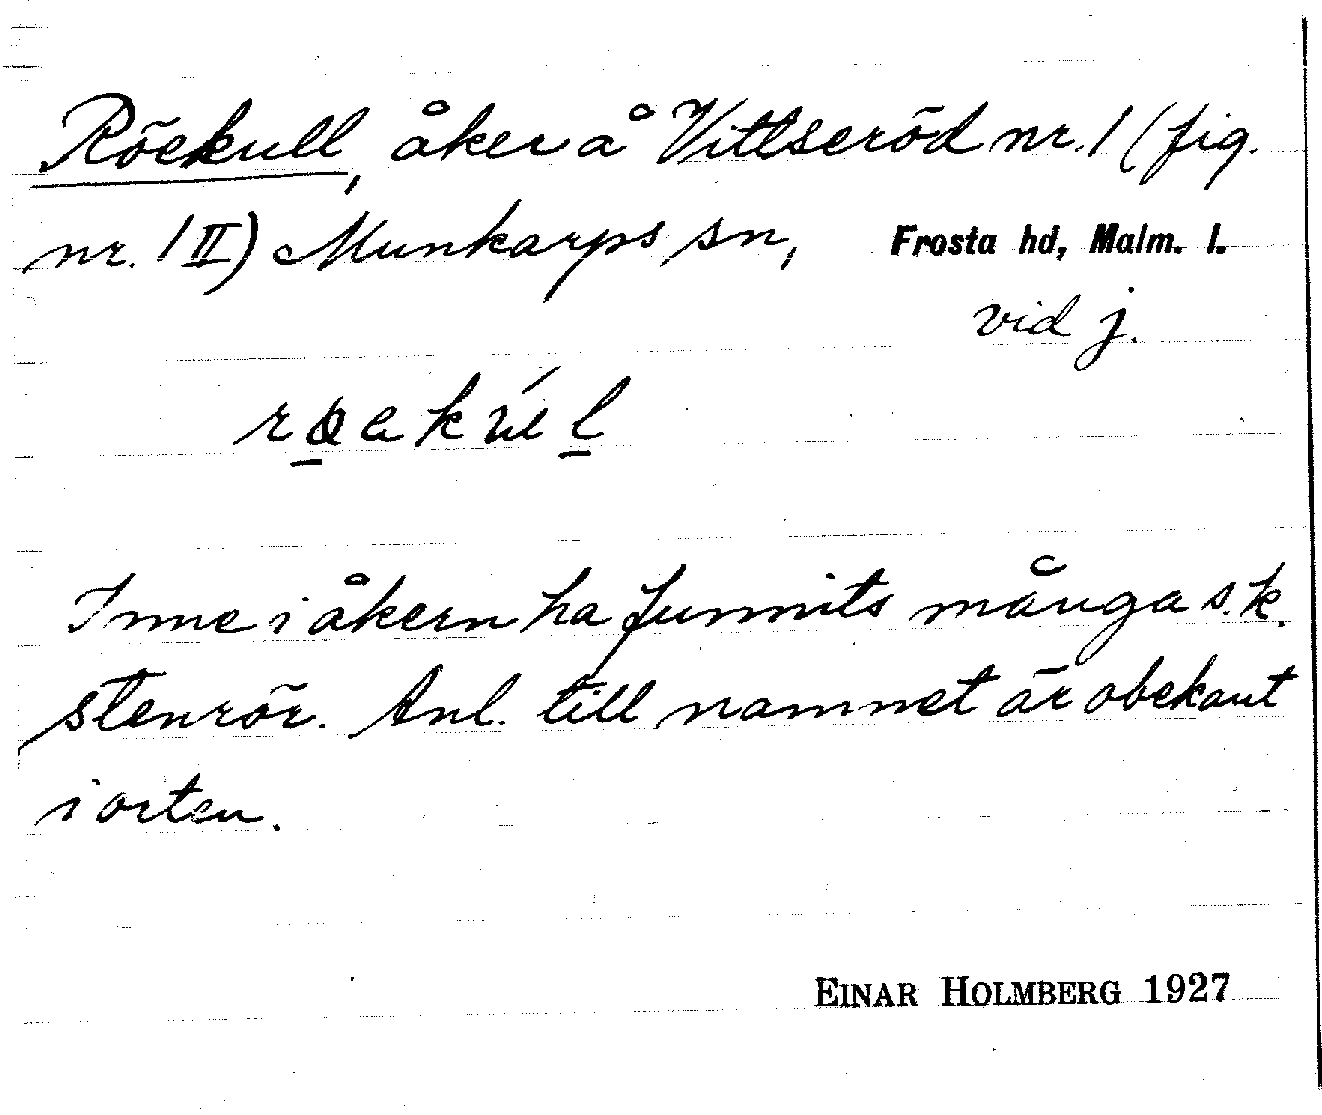 Röekull, åker å Vittseröd nr. 1 (fig.
nr. 1 II) Munkarps sn, Frosta hd, Malm. l.
vid j.
Inne i åkern ha funnits många s.k.
stenrör. Anl. till namnet är obekant
i orten.
EINAR HOLMBERG 1927